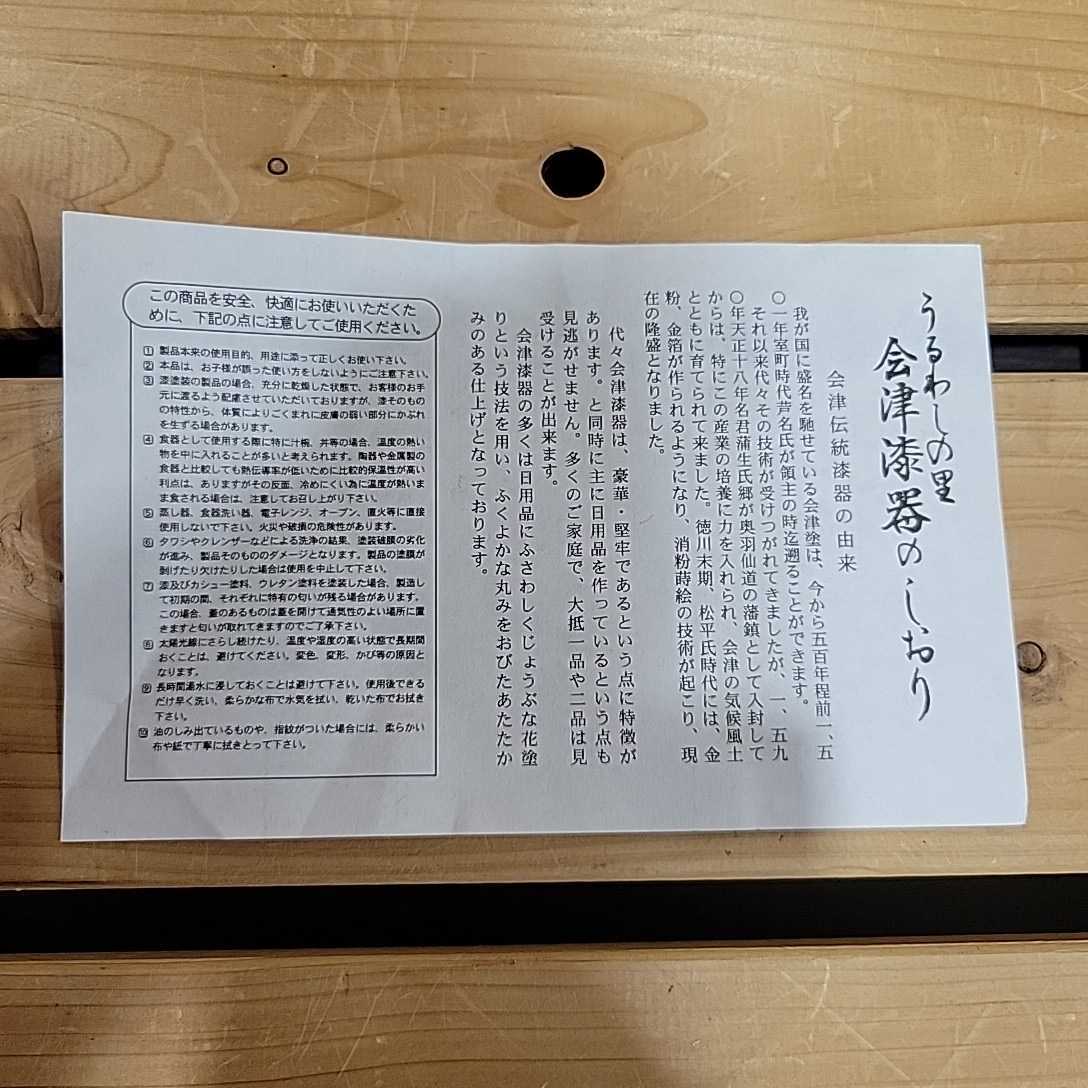 うるわしの里
会津漆器のしおり
会津伝統漆器の由来
我が国に盛名を馳せている会津塗は、今から五百年程前一、五
〇一年室町時代芦名氏が領主の時迄遡ることができます。
それ以来代々その技術が受けつがれてきましたが、一、五九
〇年天正十八年名君蒲生氏郷が奥羽仙道の藩鎮として入封して
からは、特にこの産業の培養に力を入れられ、会津の気候風土
とともに育てられて来ました。徳川末期、松平氏時代には、金
粉、金箔が作られるようになり、消粉蒔絵の技術が起こり、現
在の隆盛となりました。
代々会津漆器は、豪華・堅牢であるという点に特徴が
あります。と同時に主に日用品を作っているという点も
見逃がせません。多くのご家庭で、大抵一品や二品は見
受けることが出来ます。
会津漆器の多くは日用品にふさわしくじょうぶな花塗
りという技法を用い、ふくよかな丸みをおびたあたたか
みのある仕上げとなっております。
この商品を安全、快適にお使いいただくた
めに、下記の点に注意してご使用ください。
① 製品本来の使用目的、用途に添って正しくお使い下さい。
② 本品は、お子様が誤った使い方をしないようにご注意下さい。
③ 漆塗装の製品の場合、充分に乾燥した状態で、お客様のお手
元に渡るよう配慮させていただいておりますが、漆そのもの
の特性から、体質によりごくまれに皮膚の弱い部分にかぶれ
を生ずる場合があります。
④ 食器として使用する際に特に汁椀、丼等の場合、温度の熱い
物を中に入れることが多いと考えられます。陶器や金属製の
食器と比較しても熱伝導率が低いために比較的保温性が高い
利点は、ありますがその反面、冷めにくい為に温度が熱いま
ま食される場合は、注意してお召し上がり下さい。
⑤ 蒸し器、食器洗い器、電子レンジ、オーブン、直火等に直接
使用しないで下さい。火災や破損の危険性があります。
⑥ タワシやクレンザーなどによる洗浄の結果、塗装破膜の劣化
が進み、製品そのもののダメージとなります。製品の塗膜が
剝げたり欠けたりした場合は使用を中止して下さい。
⑦ 漆及びカシュー塗料、ウレタン塗料を塗装した場合、製造し
て初期の間、それぞれに特有の匂いが残る場合があります。
この場合、蓋のあるものは蓋を開けて通気性のよい場所に置
きますと匂いが取れてきますのでご了承下さい。
⑧ 太陽光線にさらし続けたり、温度や湿度の高い状態で長期間
おくことは、避けてください。変色、変形、かび等の原因と
なります。
⑨ 長時間湯水に浸しておくことは避けて下さい。使用後できる
だけ早く洗い、柔らかな布で水気を拭い、乾いた布でお拭き
下さい。
⑩ 油のしみ出ているものや、指紋がついた場合には、柔らかい
布や紙で丁寧に拭きとって下さい。